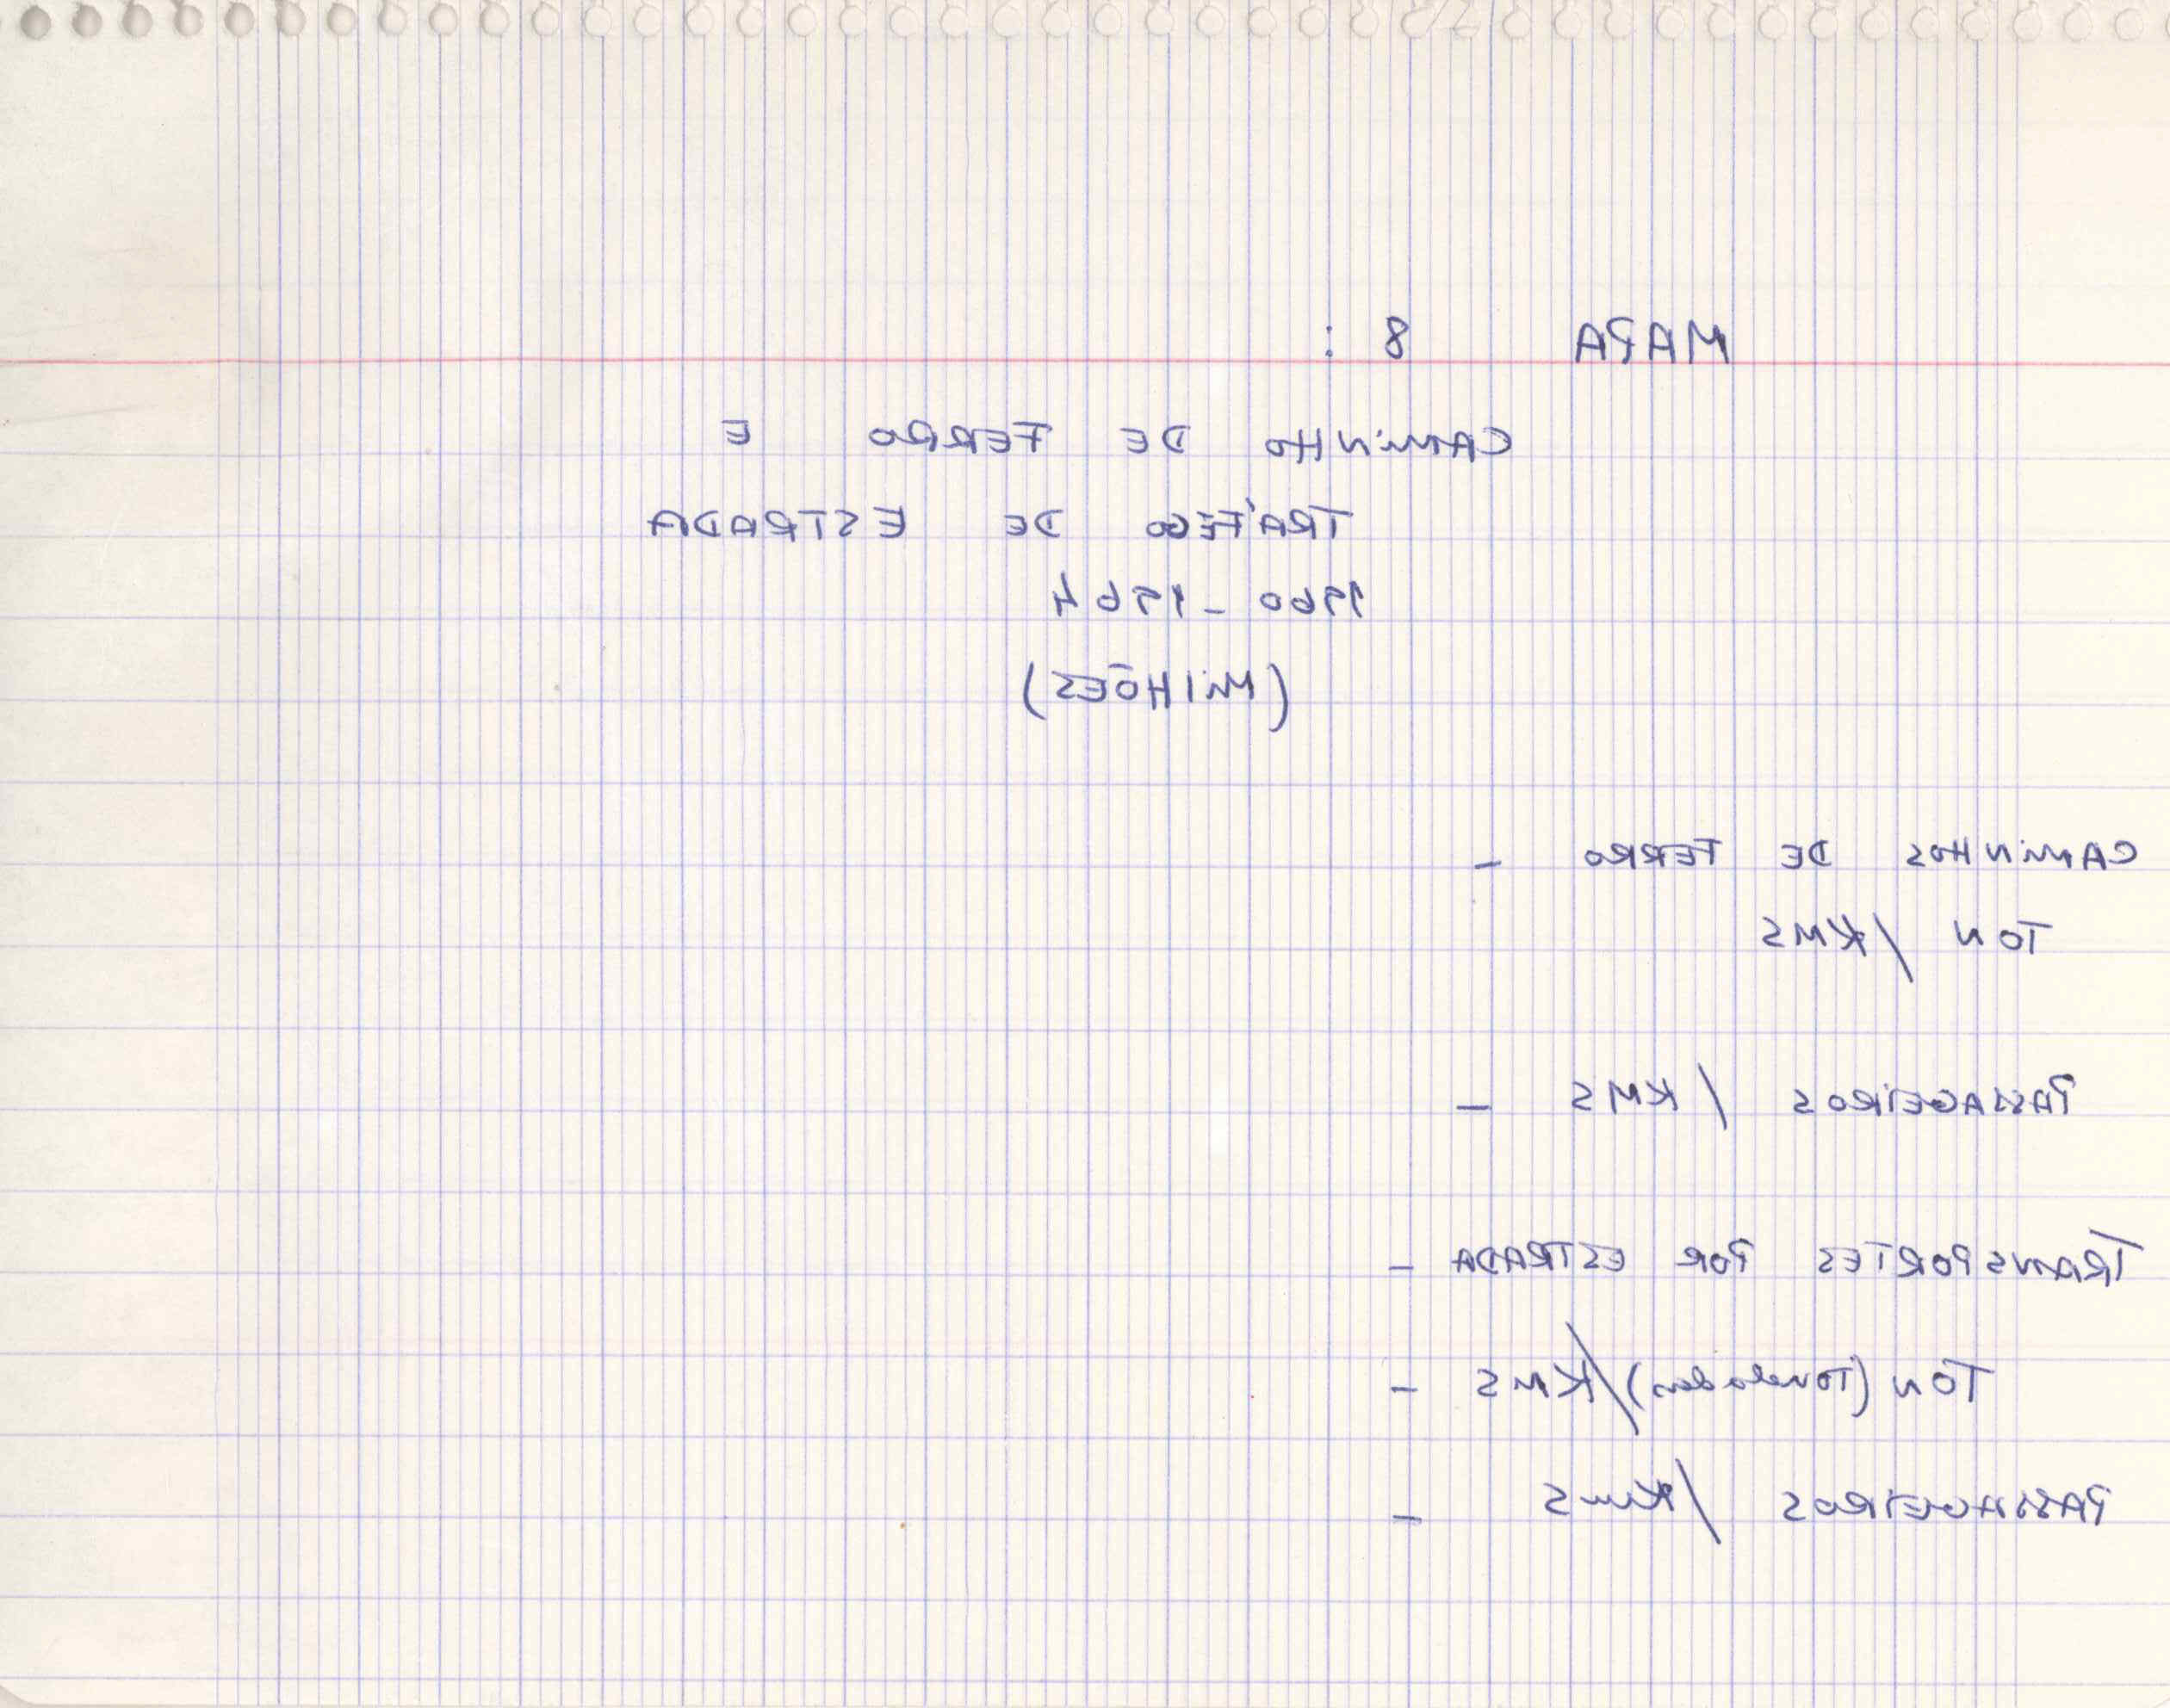 MAPA 8 :
CAMINHO DE FERRO E
TRÁFEGO DE ESTRADA
1960 - 1964
(MILHÕES)
CAMINHOS DE FERRO -
TON /KMS
PASSAGEIROS / KMS -
TRANSPORTES POR ESTRADA -
TON (Toneladas)/KMS -
PASSAGEIROS /Kms -